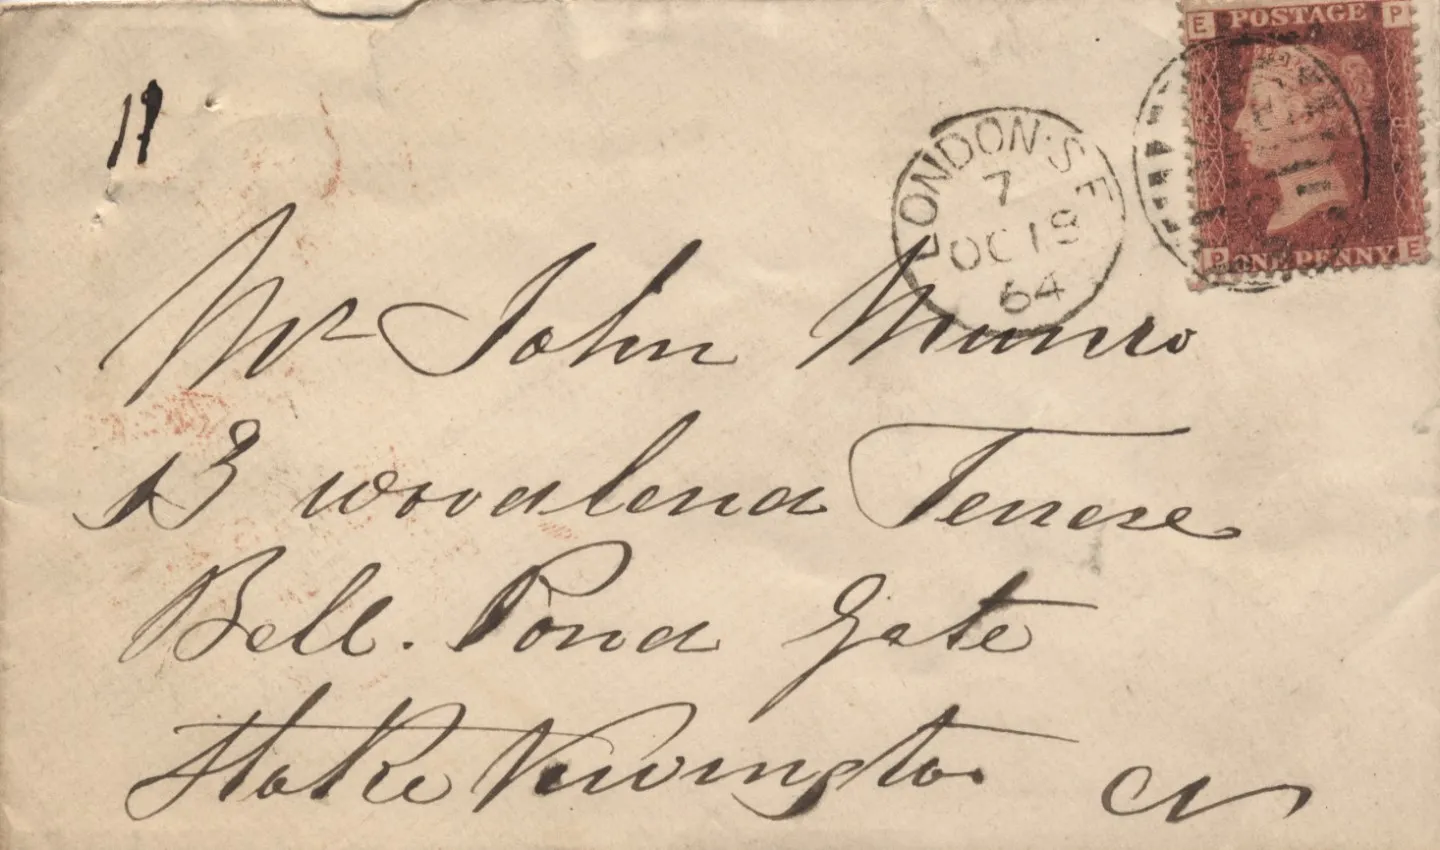 E POSTAGE P
P ONE PENNY E
LONDON·S E
7
OC 18
64
Mr John Munro
13 Woodlend Terrese
Bell. Pond Gate
Stoke Newington N